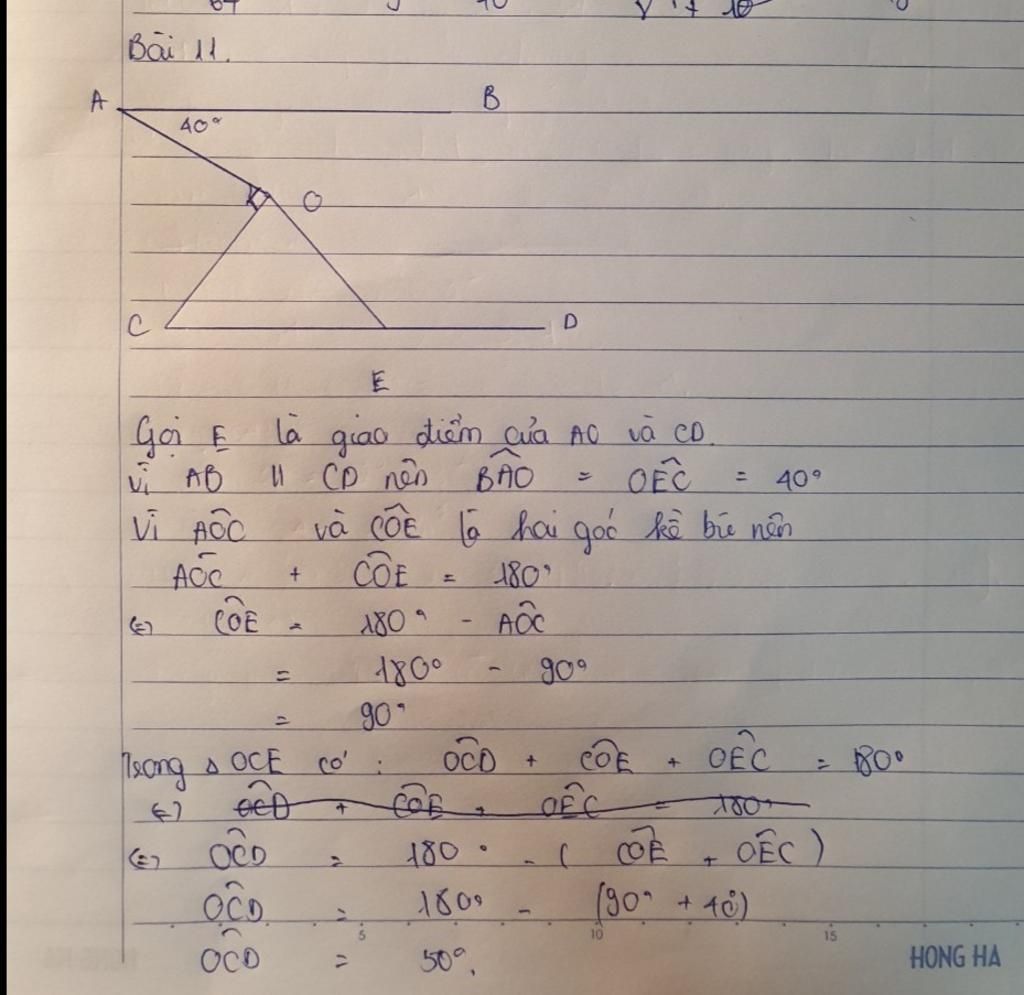 Bài 11.
A B
40°
O
C D
E
Gọi E là giao điểm của AO và CD.
Vì AB // CD nên BÂO = OÊC = 40°
Vì AÔC và CÔE là hai góc kề bù nên
AÔC + CÔE = 180°
(=) CÔE = 180° - AÔC
= 180° - 90°
= 90°
Trong △ OCE có : OĈD + CÔE + OÊC = 180°
(=) OĈD + CÔE + OÊC = 180°
(=) OĈD = 180° - ( CÔE + OÊC )
OĈD = 180° - (90° + 40°)
5 10 15
OĈD = 50°.
HONG HA